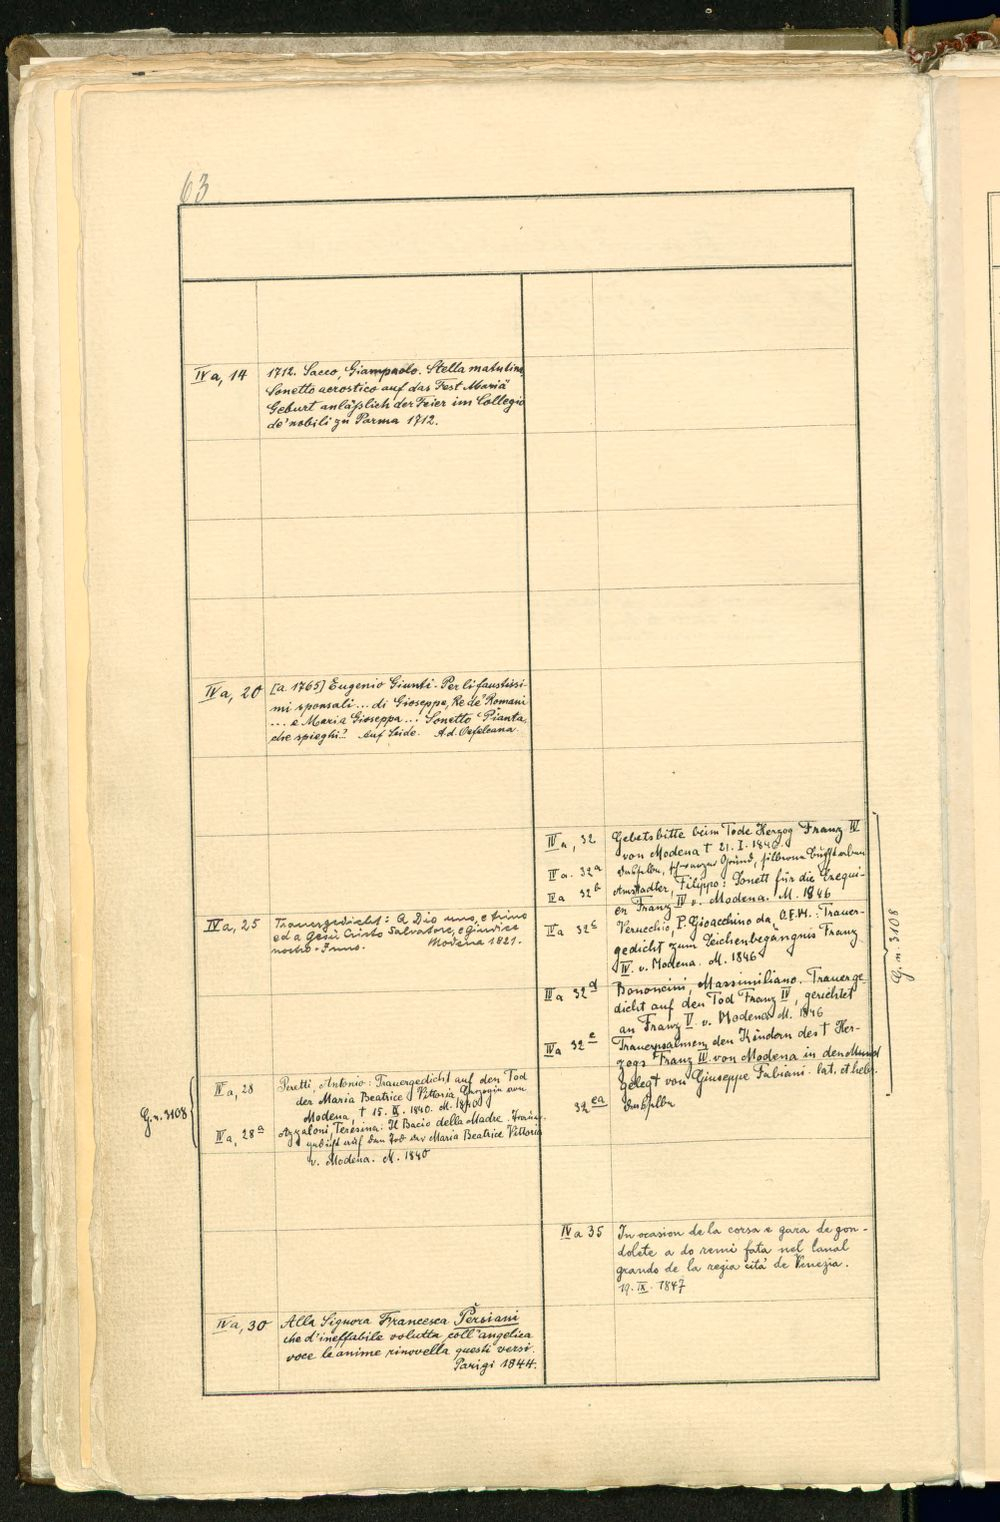 63
IVa, 14 1712. Sacco, Giampaolo. Stella matutina,
Sonetto acrostico auf das Fest Mariä
Geburt anläßlich der Feier im Collegio
de' nobili zu Parma 1712.
IVa, 20 [a 1765] Eugenio Giunti. Per li faustissi-
mi sponsali ... di Gioseppe, Re de' Romani
... e Maria Gioseppa ... Sonetto Pianta,
che spieghi? Auf Seide. Ad. Oefeleana.
IVa, 25 Trauergedicht: A Dio uno, e trino
ed a Gesù Cristo Salvatore, e Giudice
nostro. Inno. Modena 1821.
G. n. 3108
IVa, 28 Peretti, Antonio: Trauergedicht auf den Tod
der Maria Beatrice Vittoria, Herzogin von
Modena, † 15. IX. 1840. M. 1840
IVa, 28a Azzaloni, Teresina: Il Bacio della Madre. Trauer-
gedicht auf den Tod der Maria Beatrice Vittoria
v. Modena. M. 1840
IVa, 30 Alla Signora Francesca Persiani
che d'ineffabile volutta coll'angelica
voce le anime rinovella questi versi.
Parigi 1844.
IVa, 32 Gebetsbitte beim Tode Herzog Franz IV
von Modena † 21. I. 1846.
IVa. 32a Dasselbe, schwarzer Grund, silberne Buchstaben
IVa 32b Amstadter, Filippo: Sonett für die Exequi-
en Franz IV v. Modena. M. 1846
IVa 32c Verucchio, P. Gioacchino da, O.F.M.: Trauer-
gedicht zum Leichenbegängnis Franz
IV. v. Modena. M. 1846
IVa 32d Bononcini, Massimiliano. Trauerge-
dicht auf den Tod Franz IV, gerichtet
an Franz V. v. Modena. M. 1846
IVa 32e Trauerpsalmen, den Kindern des † Her-
zogs Franz IV von Modena in den Mund
gelegt von Giuseppe Fabiani. lat. et hebr.
32ea Dasselbe
G. n. 3108
IVa 35 In ocasion de la corsa e gara de gon-
dolete a do remi fata nel Canal
grando de la regia cità de Venezia.
19. IX. 1847